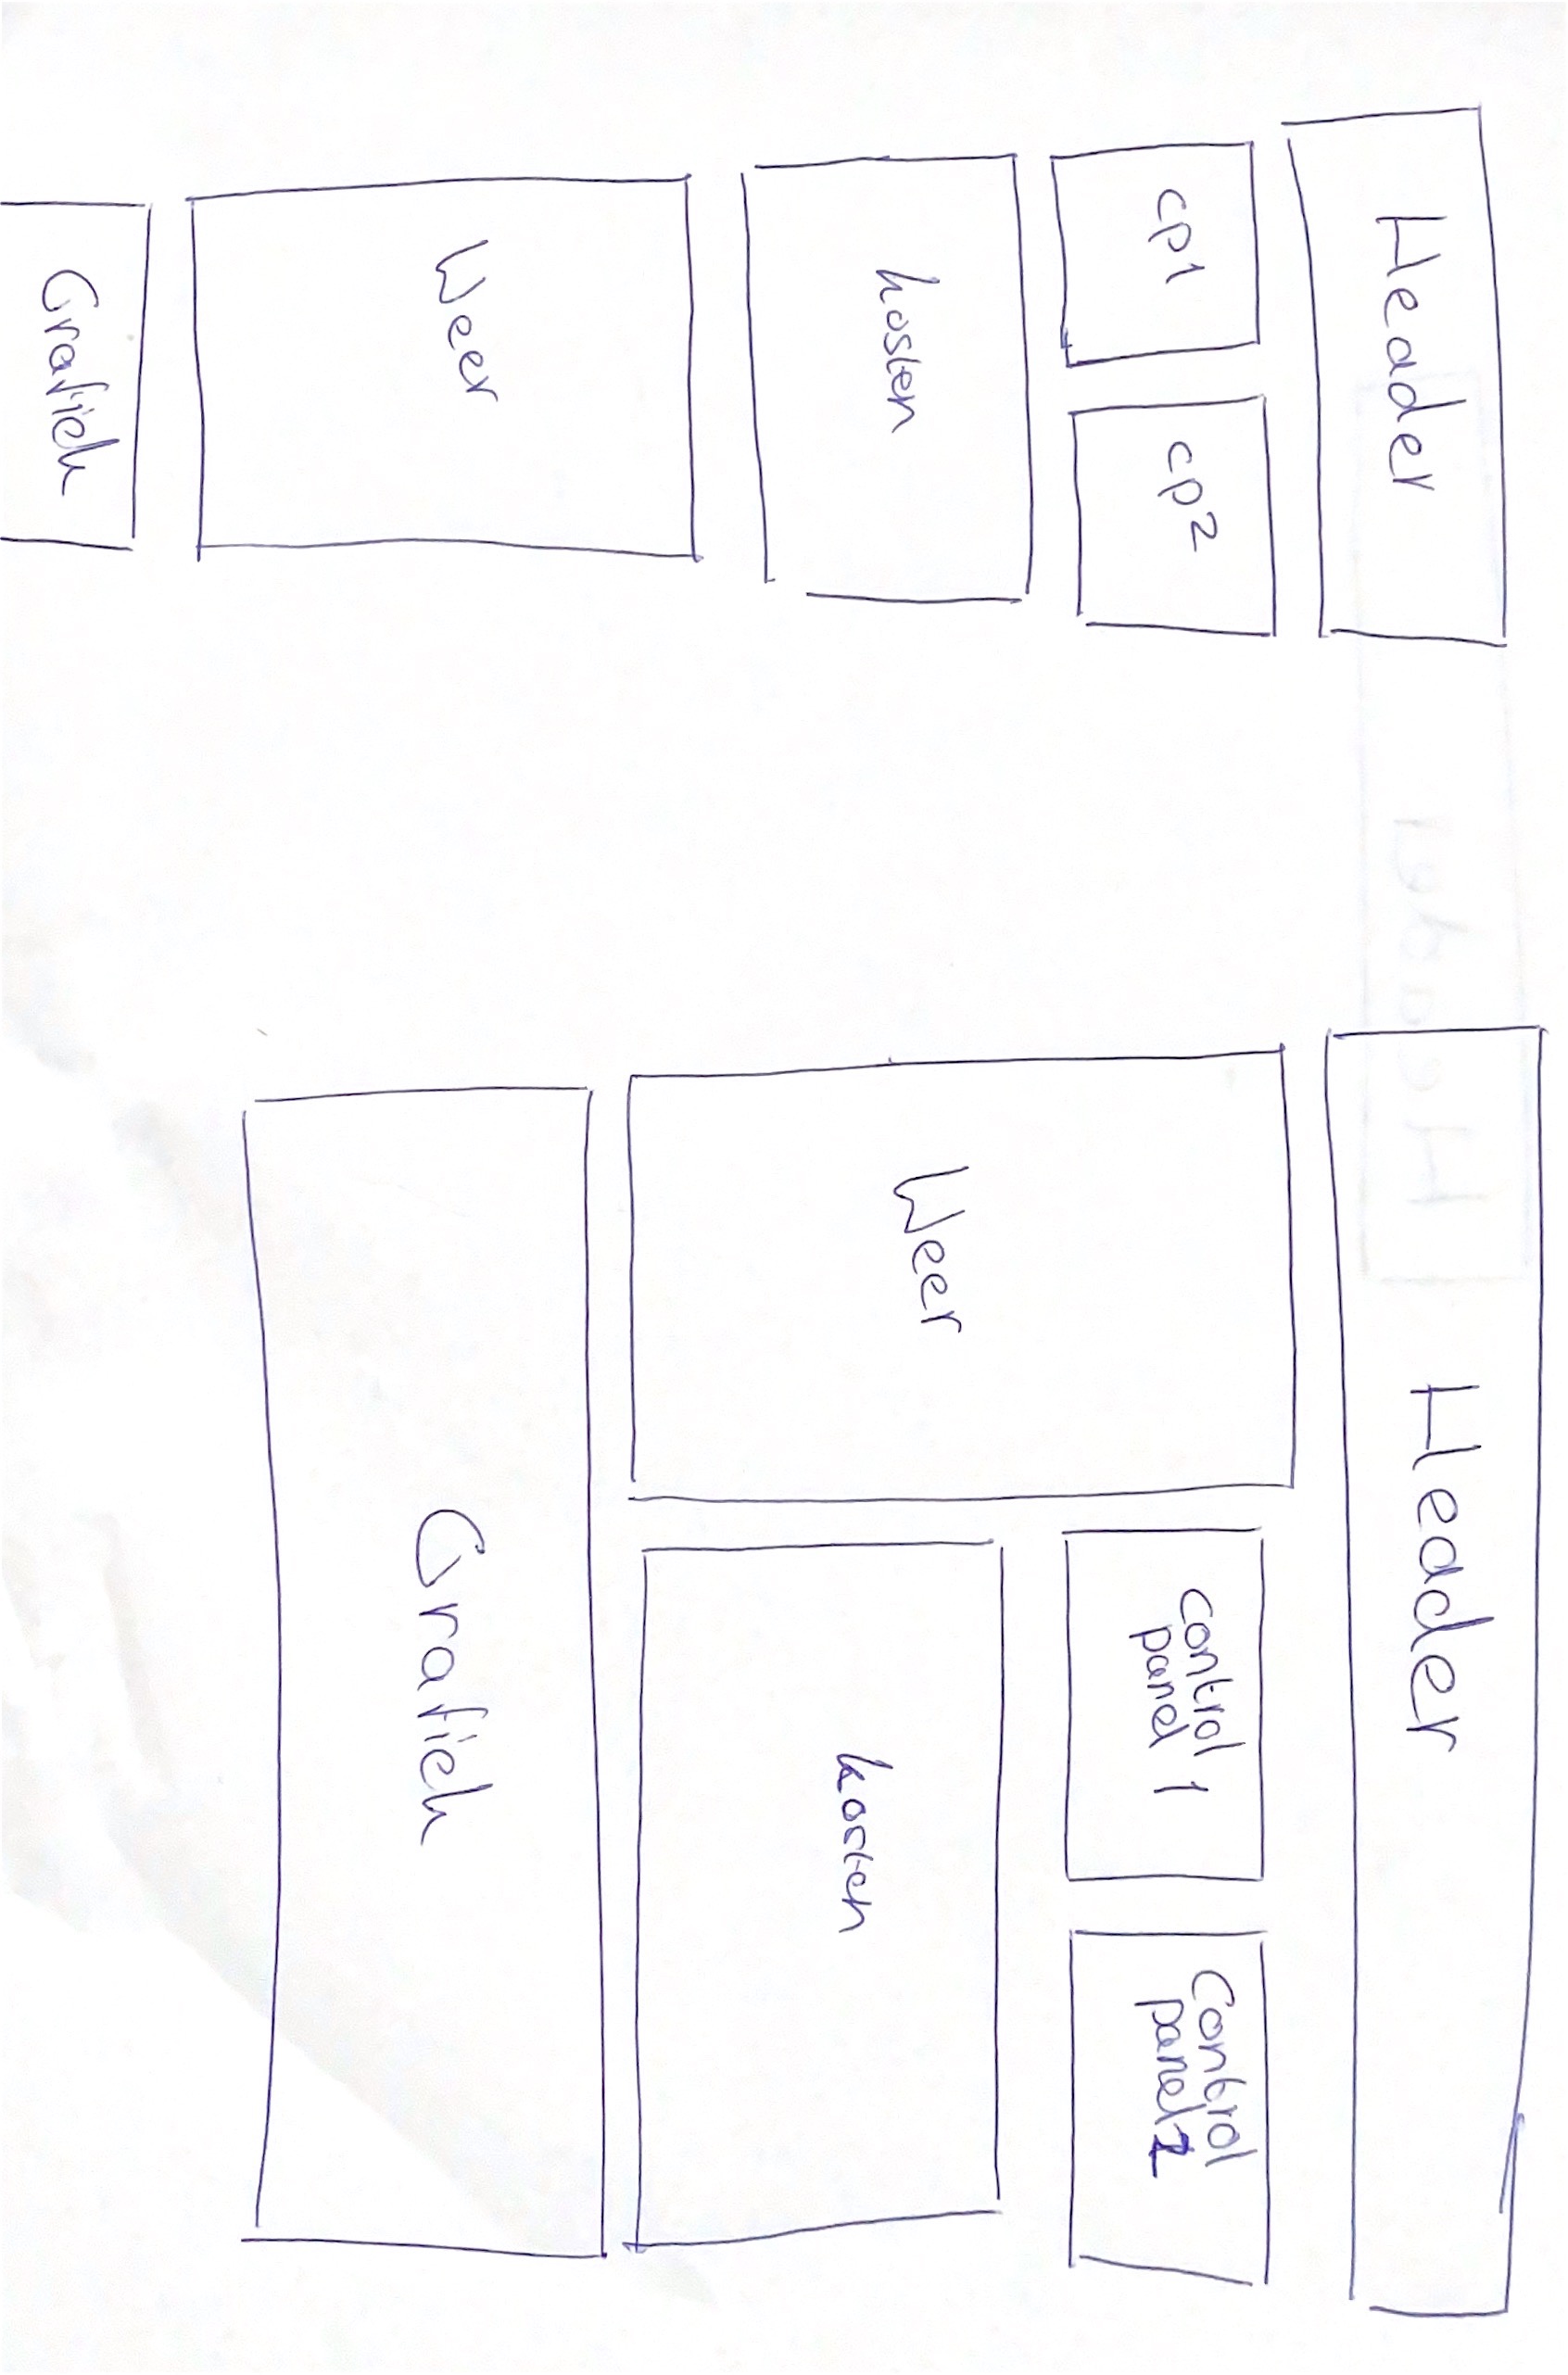 Header
cp1
cp2
kosten
Weer
Grafiek
Header
Weer
control
panel 1
Control
panel 2
kosten
Grafiek